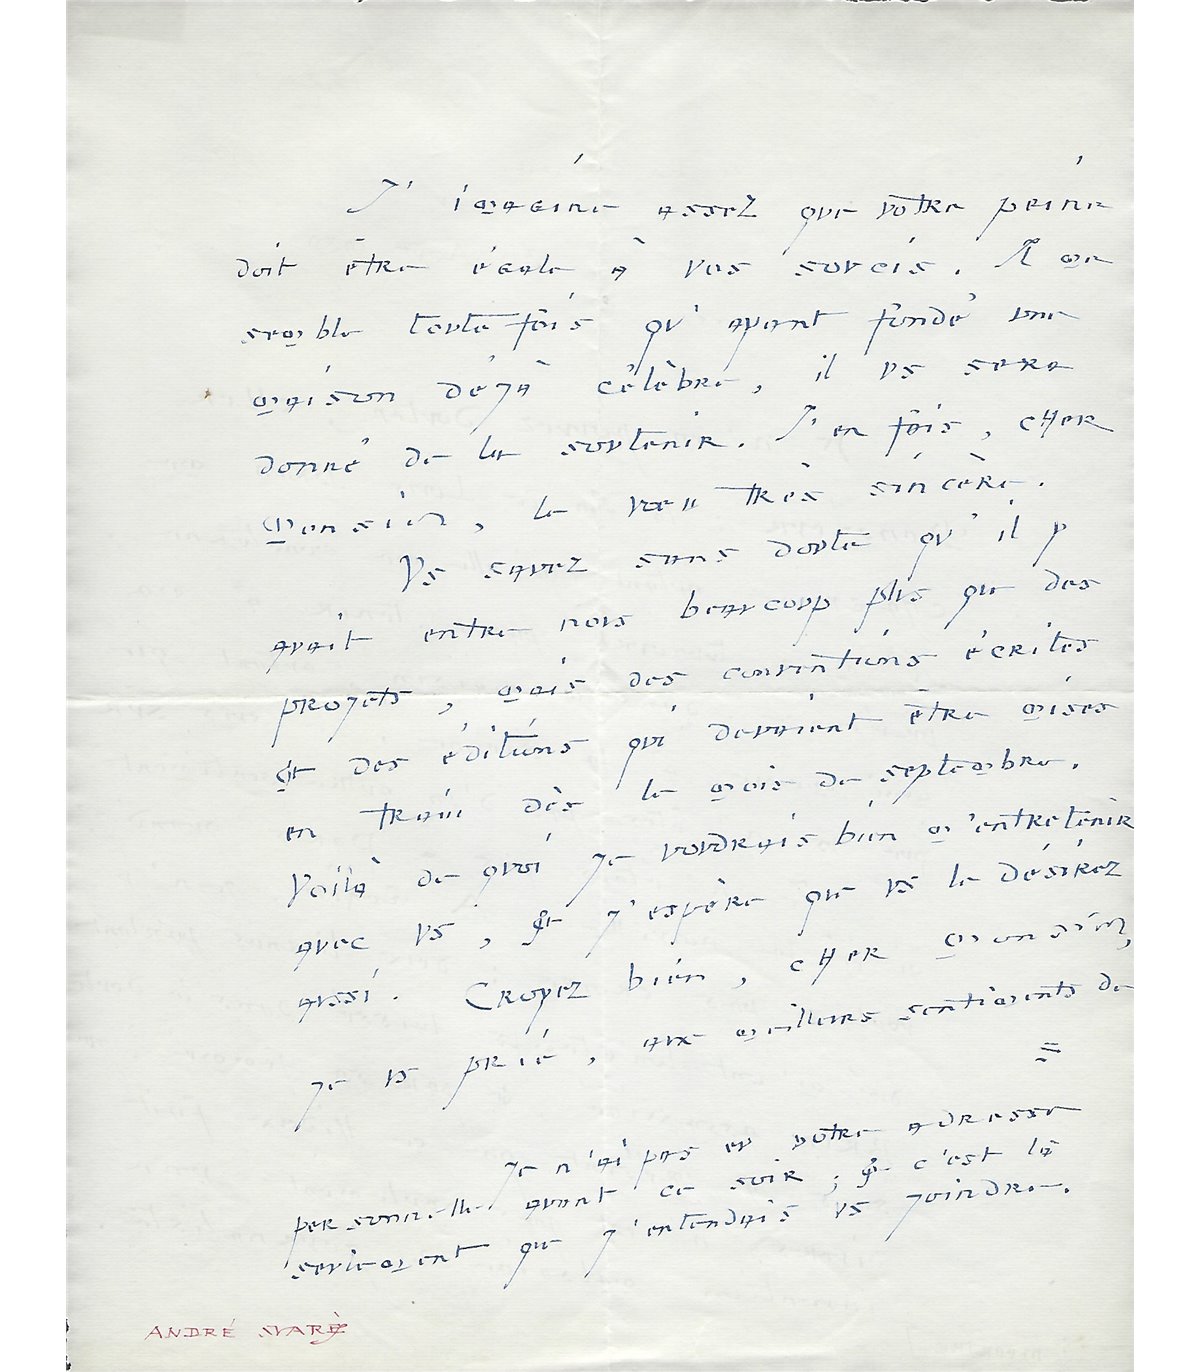 J'imagine assez que votre peine
doit être égale à vos soucis. Il me
semble toutefois qu'ayant fondé une
maison déjà célèbre, il vs sera
donné de la soutenir. J'en fois, cher
Monsieur, le voeu très sincère.
Vs savez sans doute qu'il y
avait entre nous beaucoup plus que des
projets, mais des conventions écrites
et des éditions qui devaient être mises
en train dès le mois de septembre.
Voilà de quoi je voudrais bien m'entretenir
avec vs, et j'espère que vs le désirez
aussi. Croyez bien, cher Monsieur,
je vs prie, aux meilleurs sentiments de
=
Je n'ai pas eu votre adresse
personnelle avant ce soir ; et c'est là
seulement que j'entendais vs joindre.
ANDRÉ SUARÈS